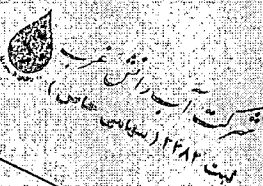 شرکت آب رانش غرب
ثبت ۲۴۸۲ (سهامی خاص)